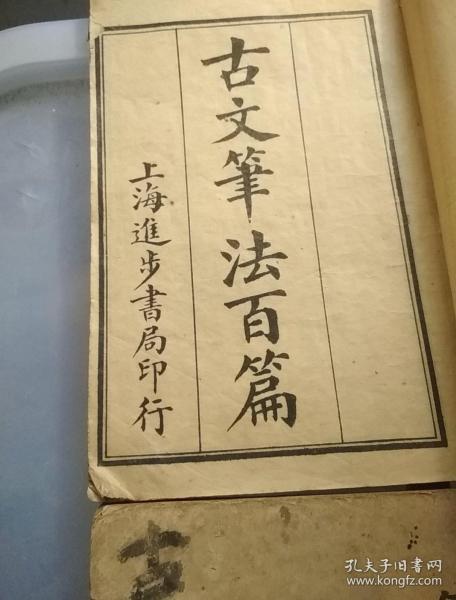 古文筆法百篇
上海進步書局印行
古
孔夫子旧书网
www.kongfz.com